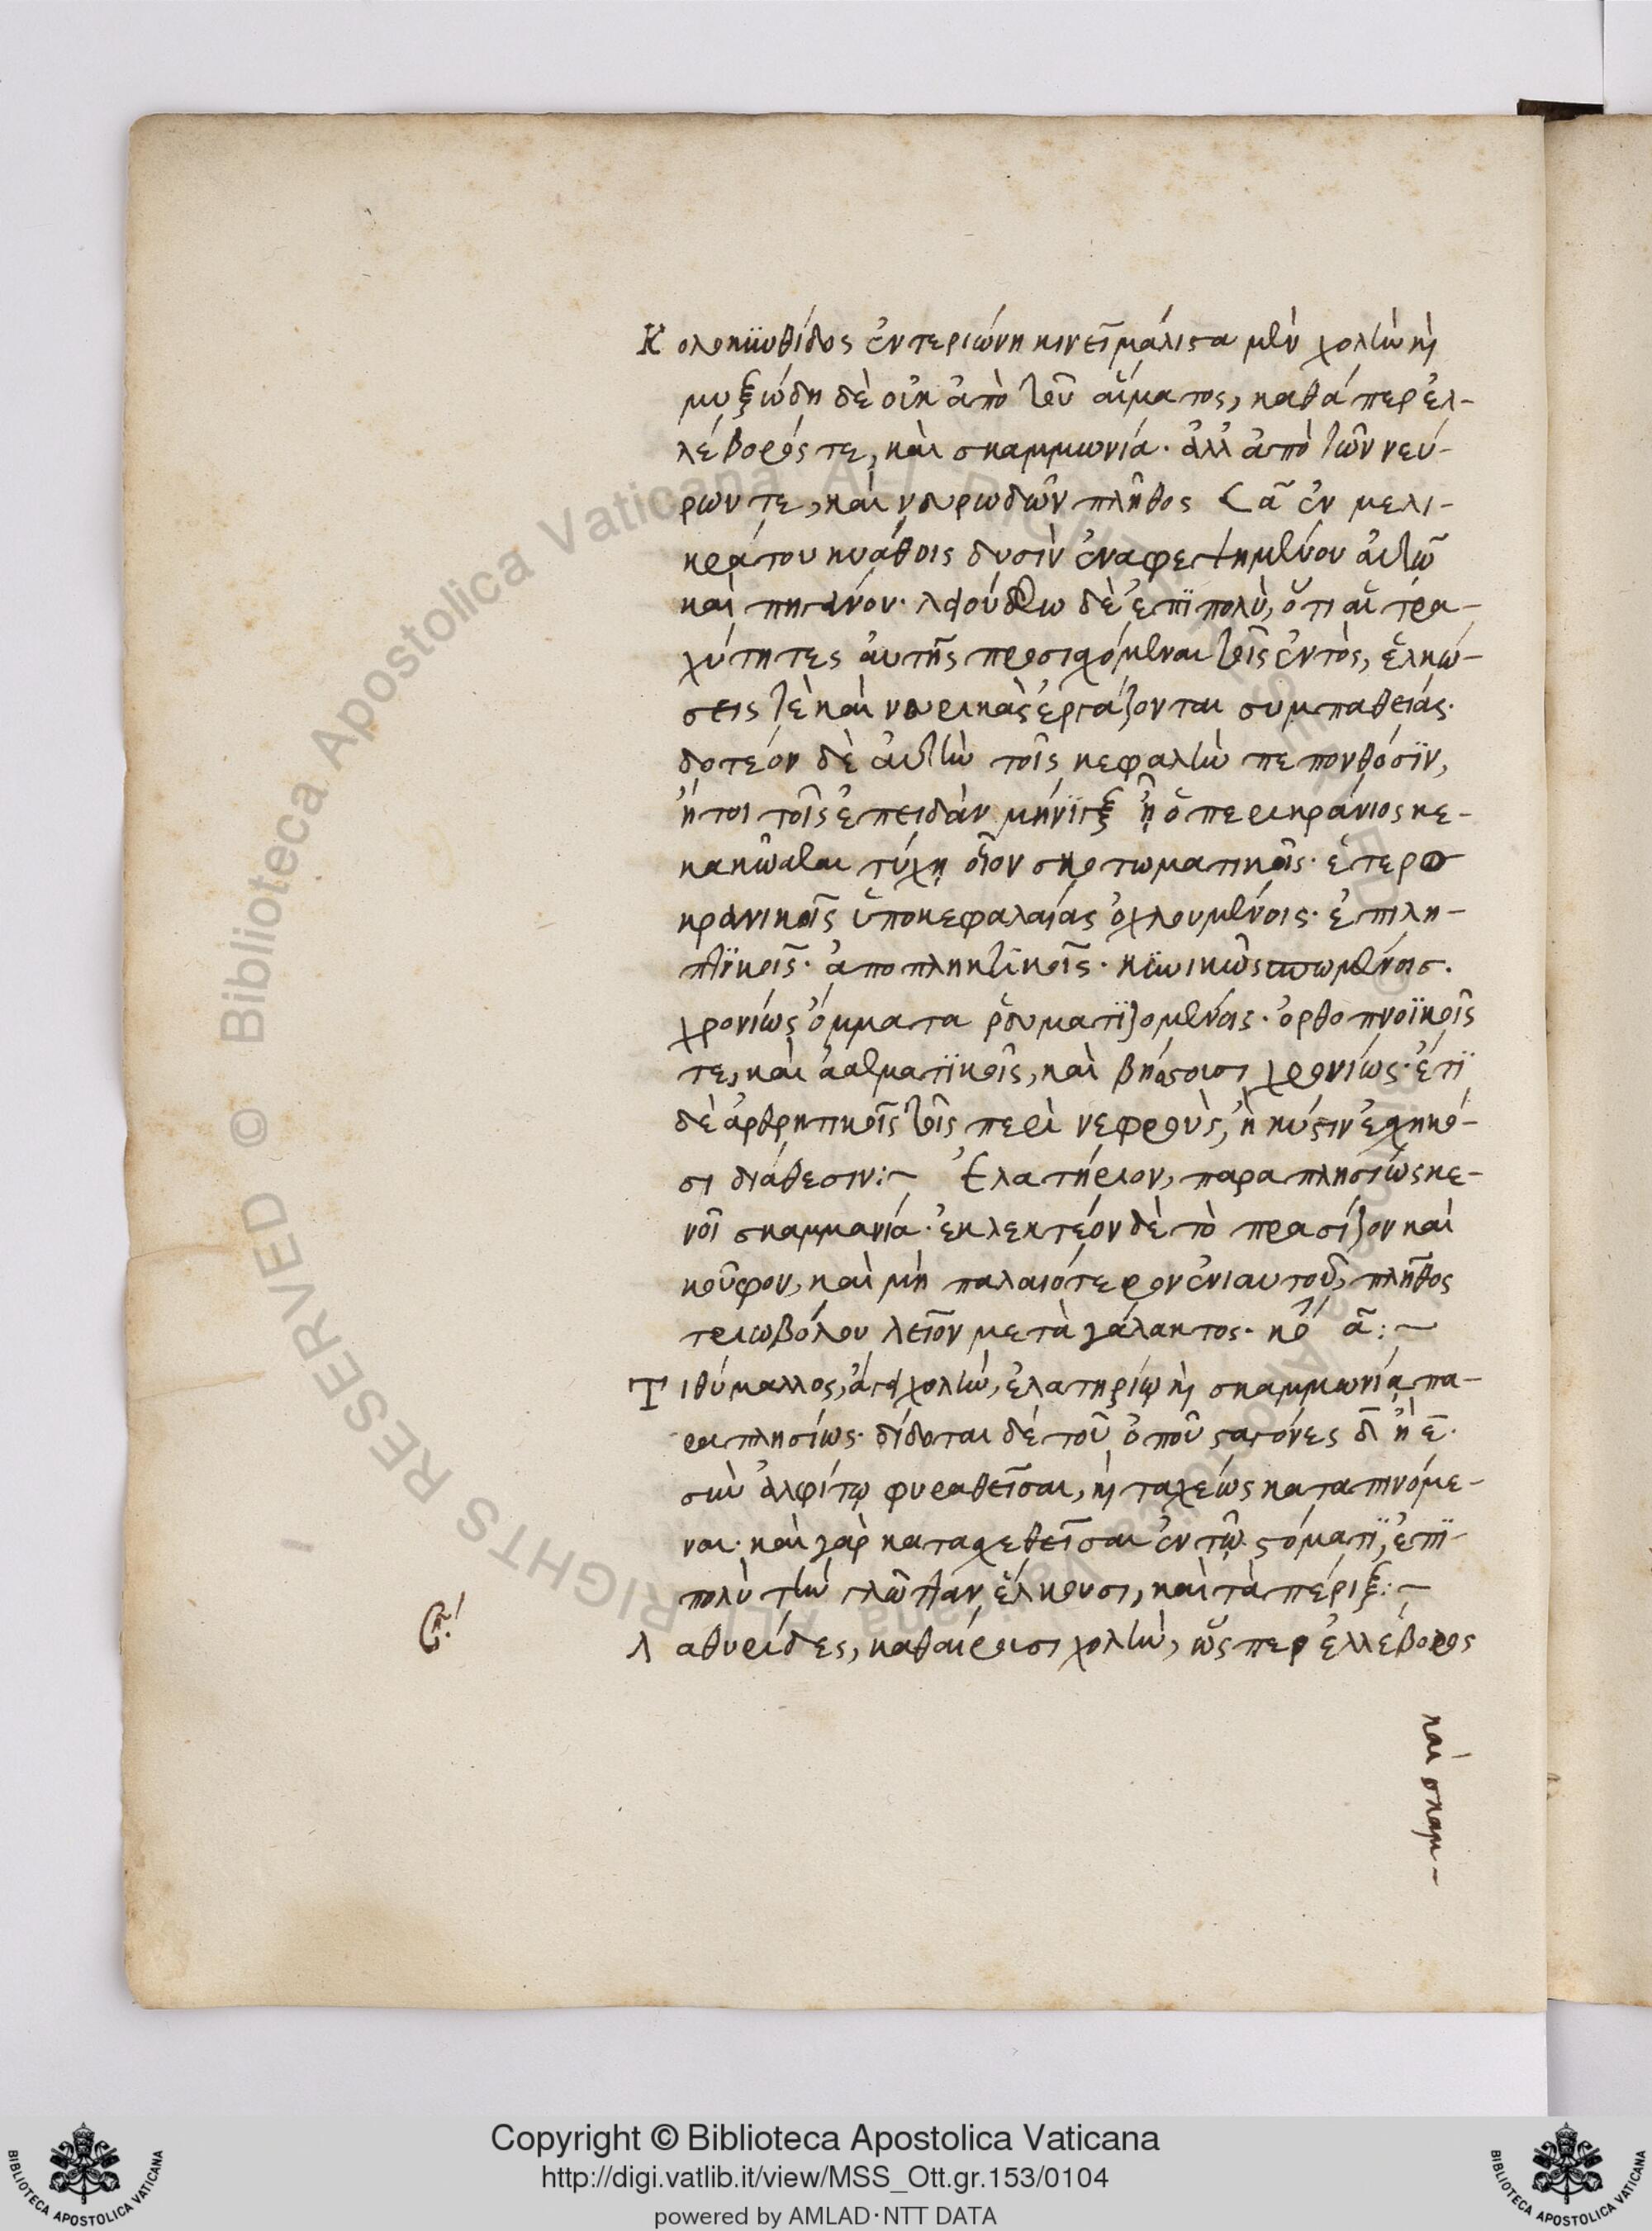 Κολοκϋνθίδος ἐντεριώνη κινεῖ μάλιστα μὲν χολὴν κὶ
μυξώδη δὲ οὐκ ἀπὸ τοῦ αἵματος, καθάπερ ἐλ-
λέβορός τε, καὶ σκαμμωνία. ἀλλ ἀπὸ τῶν νεύ-
ρων τε, καὶ νευρωδῶν πλῆθος < ᾱ ἐν μελι-
κράτου κυάθοις δυσὶν ἐναφεψημένου ἀυτῶ
καὶ πηγάνου. λείου δὲ ἐπϊπολὺ, ὅτι αἱ τρα-
χύτητες ἀυτῆς προσισχόμεναι τοῖς ἐντὸς, ἑλκώ-
σεις τὲ καὶ νευρικὰς ἐργάζονται συμπαθείας.
δοτέον δὲ ἀυτὴν τοῖς κεφαλὴν πεπονθόσϊν,
ἤτοι τοῖς ἐπειδὰν μήνϊγξ ἢ ὁ περικράνιος κε-
κακῶσθαι τύχῃ οἷον σκοτωματικοῖς. ἑτερο
κρανικοῖς ὑποκεφαλαίας ὀχλουμένοις. ἐπιλη-
πτϊκοῖς. ἀποπληκτϊκοῖς. κϋνικῶς σπωμένοις.
χρονίως ὄμματα ῥευματϊζομένοις. ὀρθοπνοϊκοῖς
τε, καὶ ἀσθματϊκοῖς, καὶ βήσσουσι χρονίως. ἔτϊ
δὲ ἀρθρητικοῖς τοῖς περὶ νεφροὺς, ἢ κύστιν ἐσχηκό-
σι διάθεσιν:~ Ἐλατήριον, παραπλησίως κε-
νοῖ σκαμμανία. ἐκλεκτέον δὲ τὸ πρασίζον καὶ
κοῦφον, καὶ μὴ παλαιότερον ἐνιαυτοῦ, πλῆθος
τριωβόλου λεῖον μετὰ γάλακτος. κο ᾱ:~
Τιθύμαλλος, ἄγει χολὴν, ἐλατηρίῳ κὶ σκαμμωνίᾳ πα-
ραπλησίως. δίδοται δέ τοῦ ὀποῦ σταγόνες δ̄ ἢ ε̄.
σὺν ἀλφίτῳ φυραθεῖσαι, κὶ ταχέως καταπινόμε-
ναι. καὶ γὰρ κατασχεθεῖσαι ἐν τῶ στόματϊ, ἐπϊ-
πολὺ τὴν γλῶτταν, ἑλκουσι, καὶ τὰ πέριξ:~
Λαθυρίδες, καθαίρουσι χολὴν, ὥσπερ ἐλλέβορος
καὶ σκαμ-
Copyright © Biblioteca Apostolica Vaticana
http://digi.vatlib.it/view/MSS_Ott.gr.153/0104
powered by AMLAD·NTT DATA
BIBLIOTECA APOSTOLICA VATICANA
BIBLIOTECA APOSTOLICA VATICANA
© Biblioteca Apostolica Vaticana ALL RIGHTS RESERVED